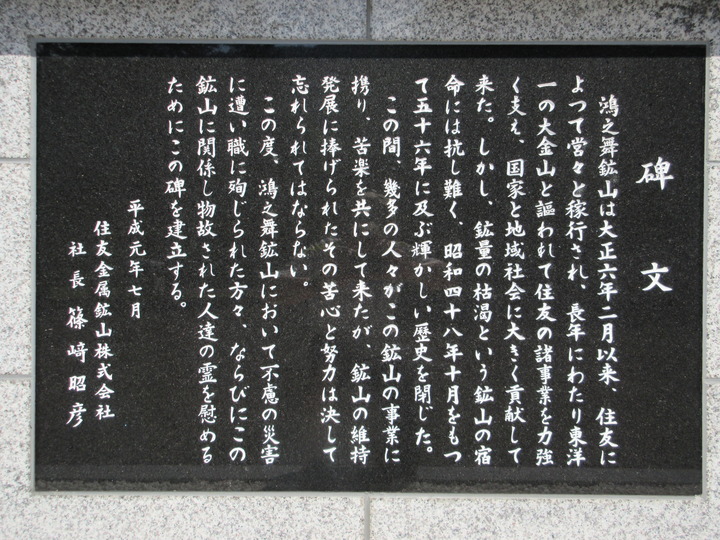 碑文
鴻之舞鉱山は大正六年二月以来、住友に
よって営々と稼行され、長年にわたり東洋
一の大金山と謳われて住友の諸事業を力強
く支え、国家と地域社会に大きく貢献して
来た。しかし、鉱量の枯渇という鉱山の宿
命には抗し難く、昭和四十八年十月をもっ
て五十六年に及ぶ輝かしい歴史を閉じた。
この間、幾多の人々がこの鉱山の事業に
携り、苦楽を共にして来たが、鉱山の維持
発展に捧げられたその苦心と努力は決して
忘れられてはならない。
この度、鴻之舞鉱山において不慮の災害
に遭い職に殉じられた方々、ならびにこの
鉱山に関係し物故された人達の霊を慰める
ためにこの碑を建立する。
平成元年七月
住友金属鉱山株式会社
社長 篠﨑昭彦